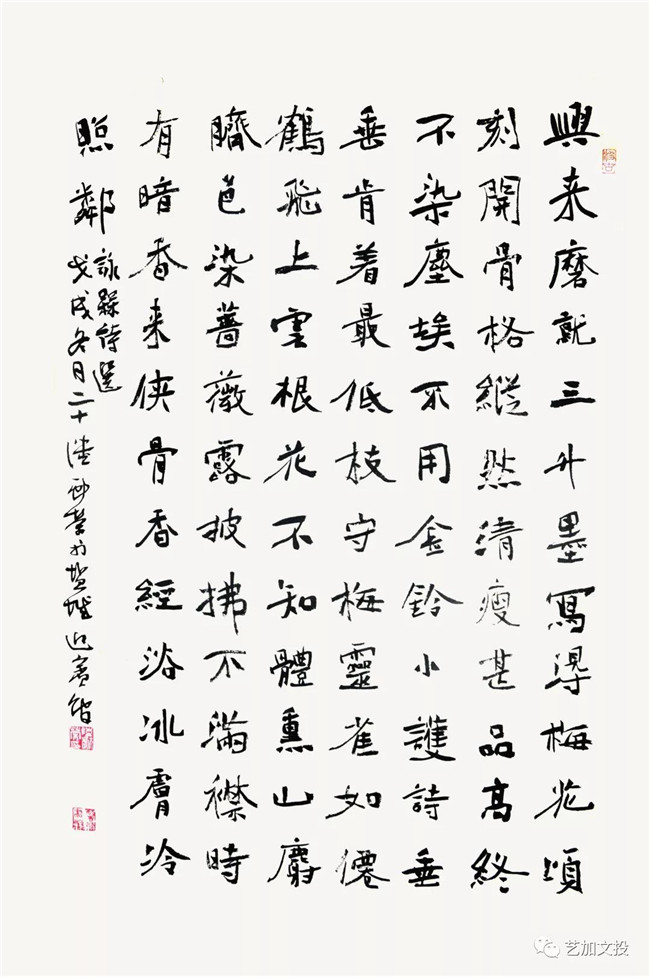 興来磨就三升墨寫得梅花頃
刻開骨格縱然清瘦甚品高終
不染塵埃不用金鈴小護詩垂
垂肯着最低枝守梅靈雀如僊
鶴飛上雲根花不知體熏山麝
臍芭染薔薇露披拂不滿襟時
有暗香来侠骨香經浴冰膚冷
照鄰
詠槑詩選
戊戌冬月二十 於盐城迎賓館
艺加文投